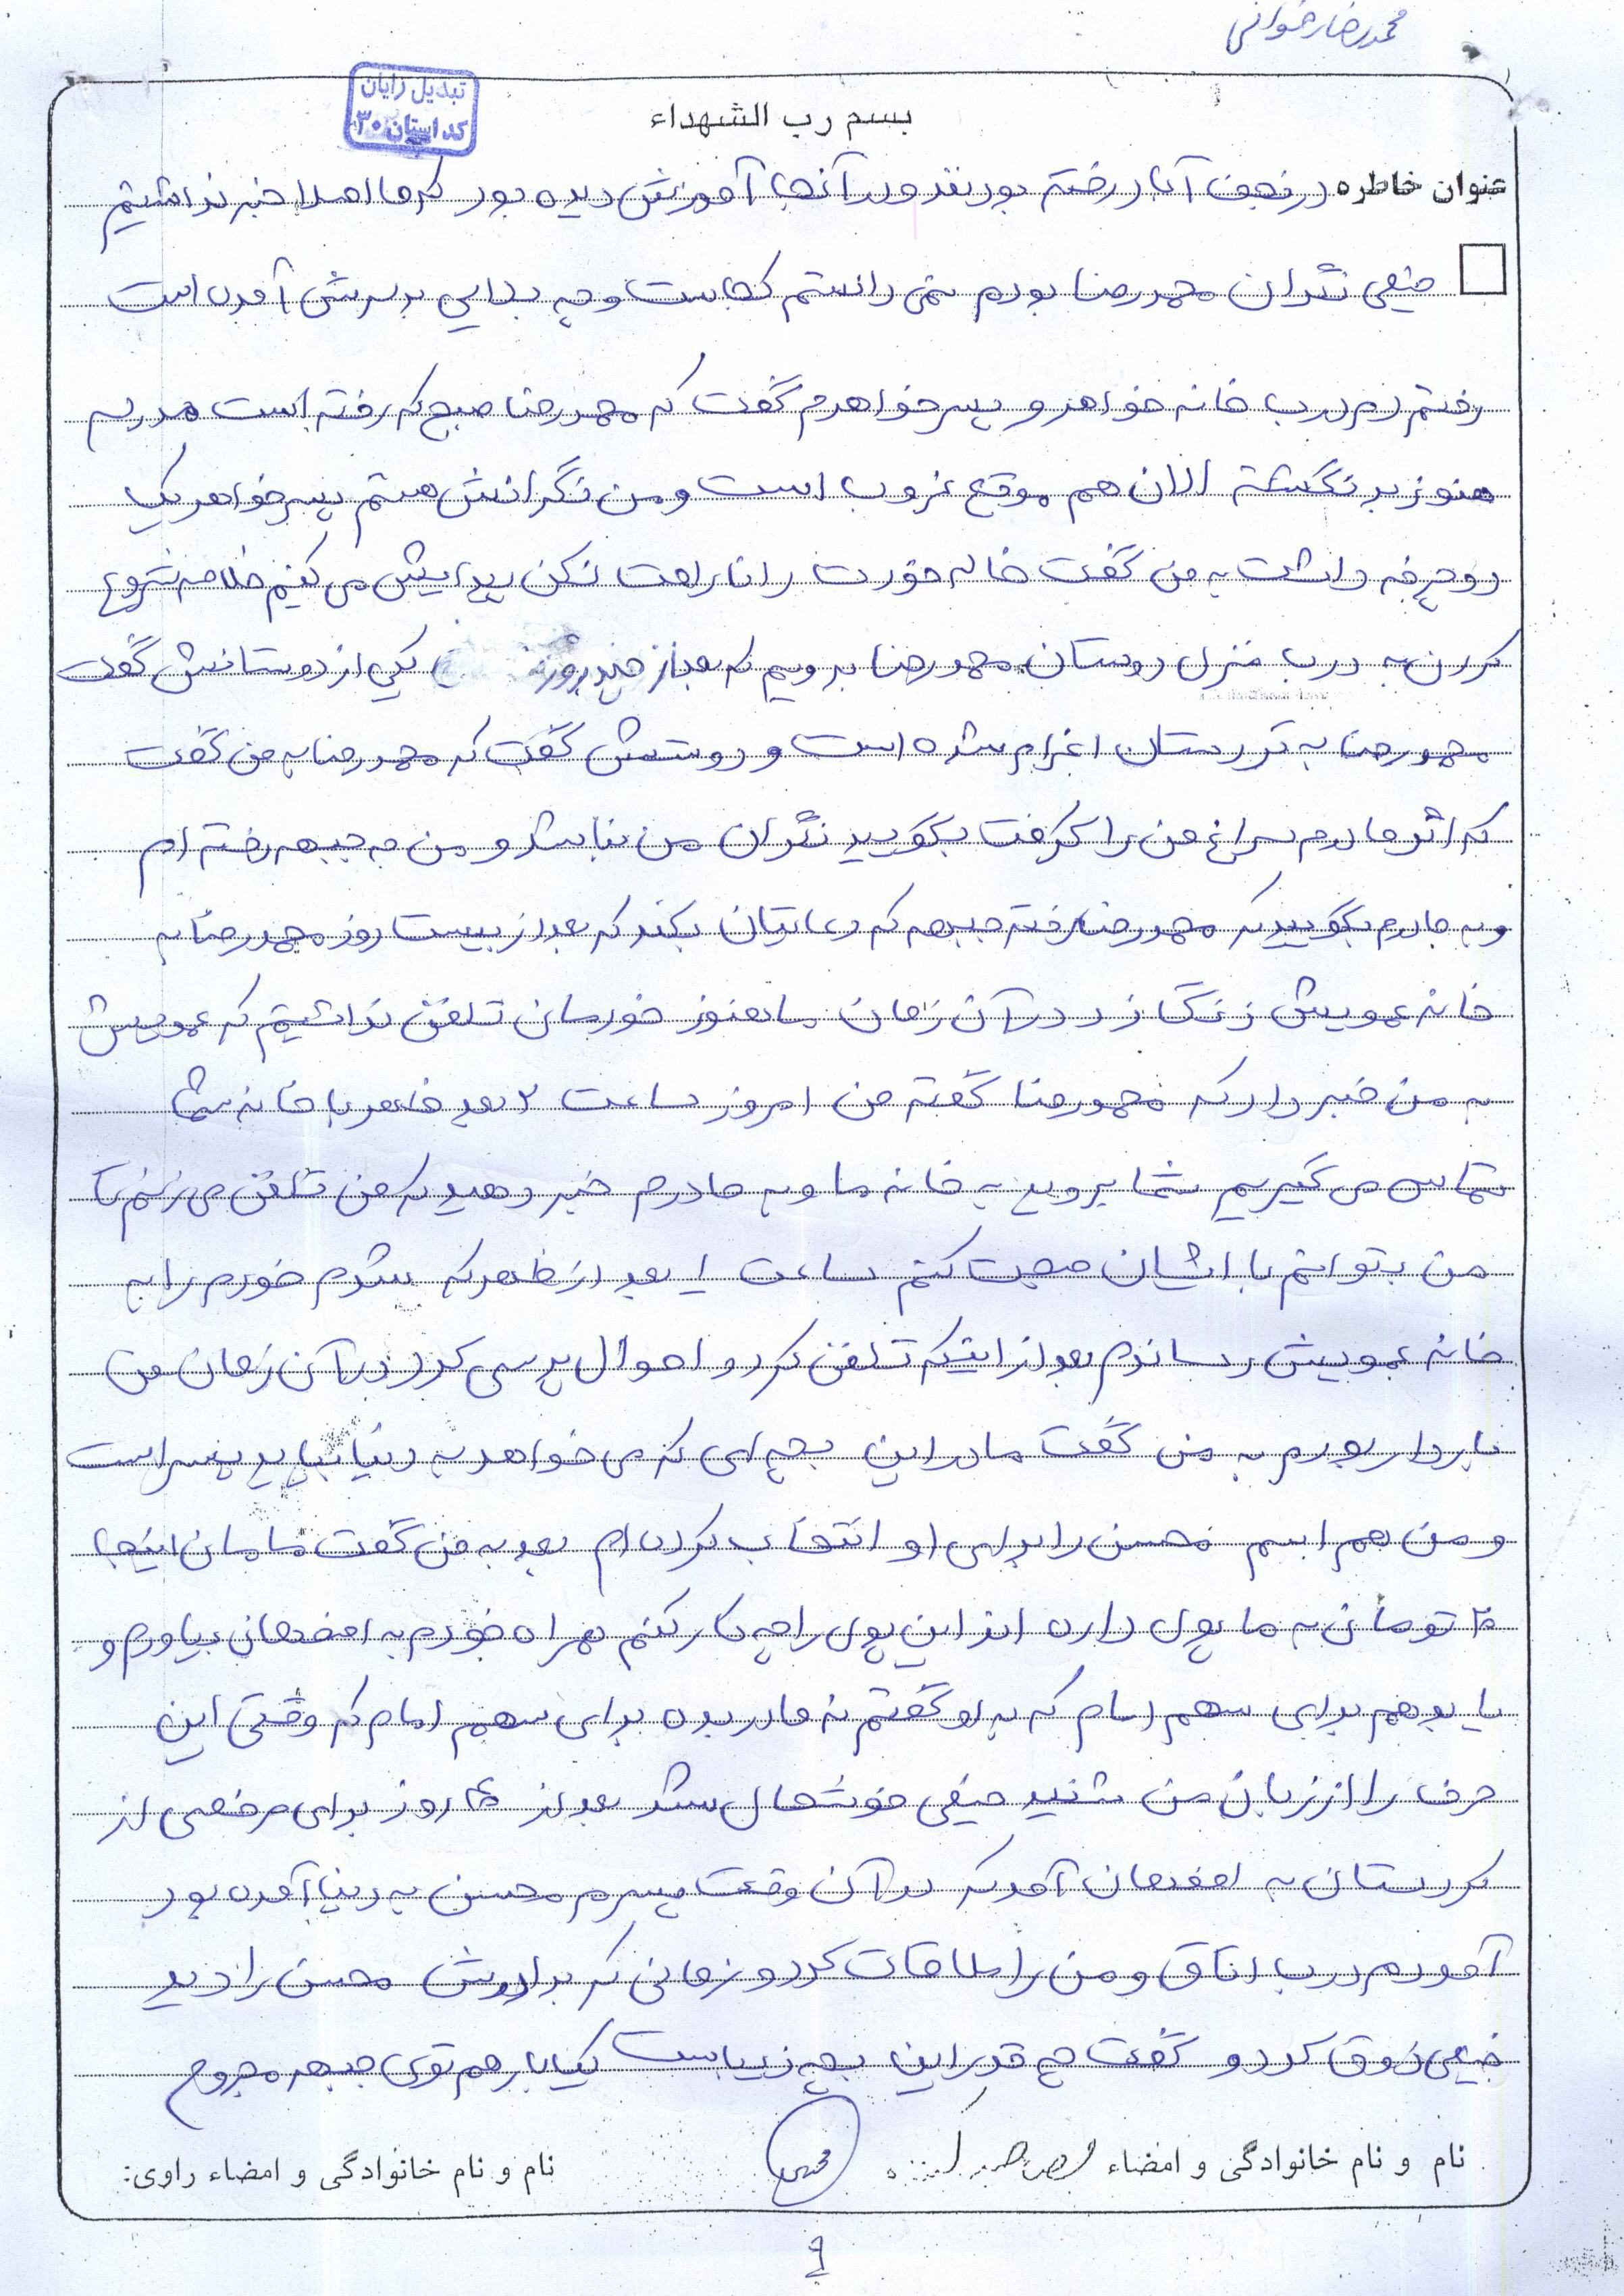 محمدرضا رضوانی
تبدیل رایان
کد استان ۳۰
بسم رب الشهداء
عنوان خاطره در نجف آباد رفته بودند و در آنجا آموزش دیده بود که ما اصلا خبر نداشتیم
خیلی نگران محمدرضا بودم نمی دانستم کجاست و چه بلایی بر سرش آمده است
رفتم دم درب خانه خواهر و پسر خواهرم گفت که محمدرضا صبح که رفته است مدرسه
هنوز برنگشته الان هم موقع غروب است و من نگرانش هستم پسر خواهر یک
دوچرخه داشت به من گفت خاله خودت را ناراحت نکن پیدایش می کنیم خلاصه شروع
کردن به درب منزل دوستان محمدرضا برویم که بعد از چند روز یکی از دوستانش گفت
محمدرضا به کردستان اعزام شده است و دوستش گفت که محمدرضا به من گفت
که اگر مادرم سراغ من را گرفت بگویید نگران من نباشد و من به جبهه رفته ام
و به مادرم بگویید که محمدرضا رفته جبهه که دعایتان بکند که بعد از بیست روز محمدرضا به
خانه عمویش زنگ زد در آن زمان ما هنوز خودمان تلفن نداشتیم که عمویش
به من خبر داد که محمدرضا گفته من امروز ساعت ۲ بعد ظهر با خانه شما
تماس می گیریم شما بروید به خانه ما و به مادرم خبر دهید که من تلفن می زنم تا
من بتوانم با ایشان صحبت کنم ساعت ۱ بعد از ظهر که شدم خودم را به
خانه عمویش رساندم بعد از اینکه تلفن کرد و احوال پرسی کرد در آن زمان من
باردار بودم به من گفت مادر این بچه ای که می خواهد به دنیا بیاید پسر است
و من هم اسم محسن را برای او انتخاب کرده ام بعد به من گفت مامان اینجا
۲۰ تومانی به ما پول داده اند این پول را چه کار کنم همراه خودم به اصفهان بیاورم و
یا بدهم برای سهم امام که به او گفتم نه مادر بده برای سهم امام که وقتی این
حرف را از زبان من شنید خیلی خوشحال شد بعد از ۴۵ روز برای مرخصی از
کردستان به اصفهان آمد که در آن وقت پسرم محسن به دنیا آمده بود
آمد دم درب اتاق و من را ملاقات کرد و زمانی که برادرش محسن را دید
خیلی ذوق کرد و گفت چه قدر این بچه زیباست یکبار هم توی جبهه مجروح
نام و نام خانوادگی و امضاء
نام و نام خانوادگی و امضاء راوی: